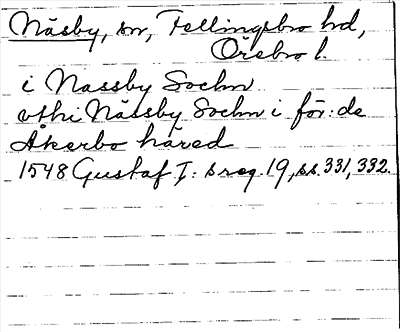 Näsby, sn, Fellingsbro hd,
Örebro l.
i Nassby Sochn
vthi Nässby Sochn i för:de
Åkerbo häred
1548 Gustaf I: s reg. 19, ss. 331, 332.